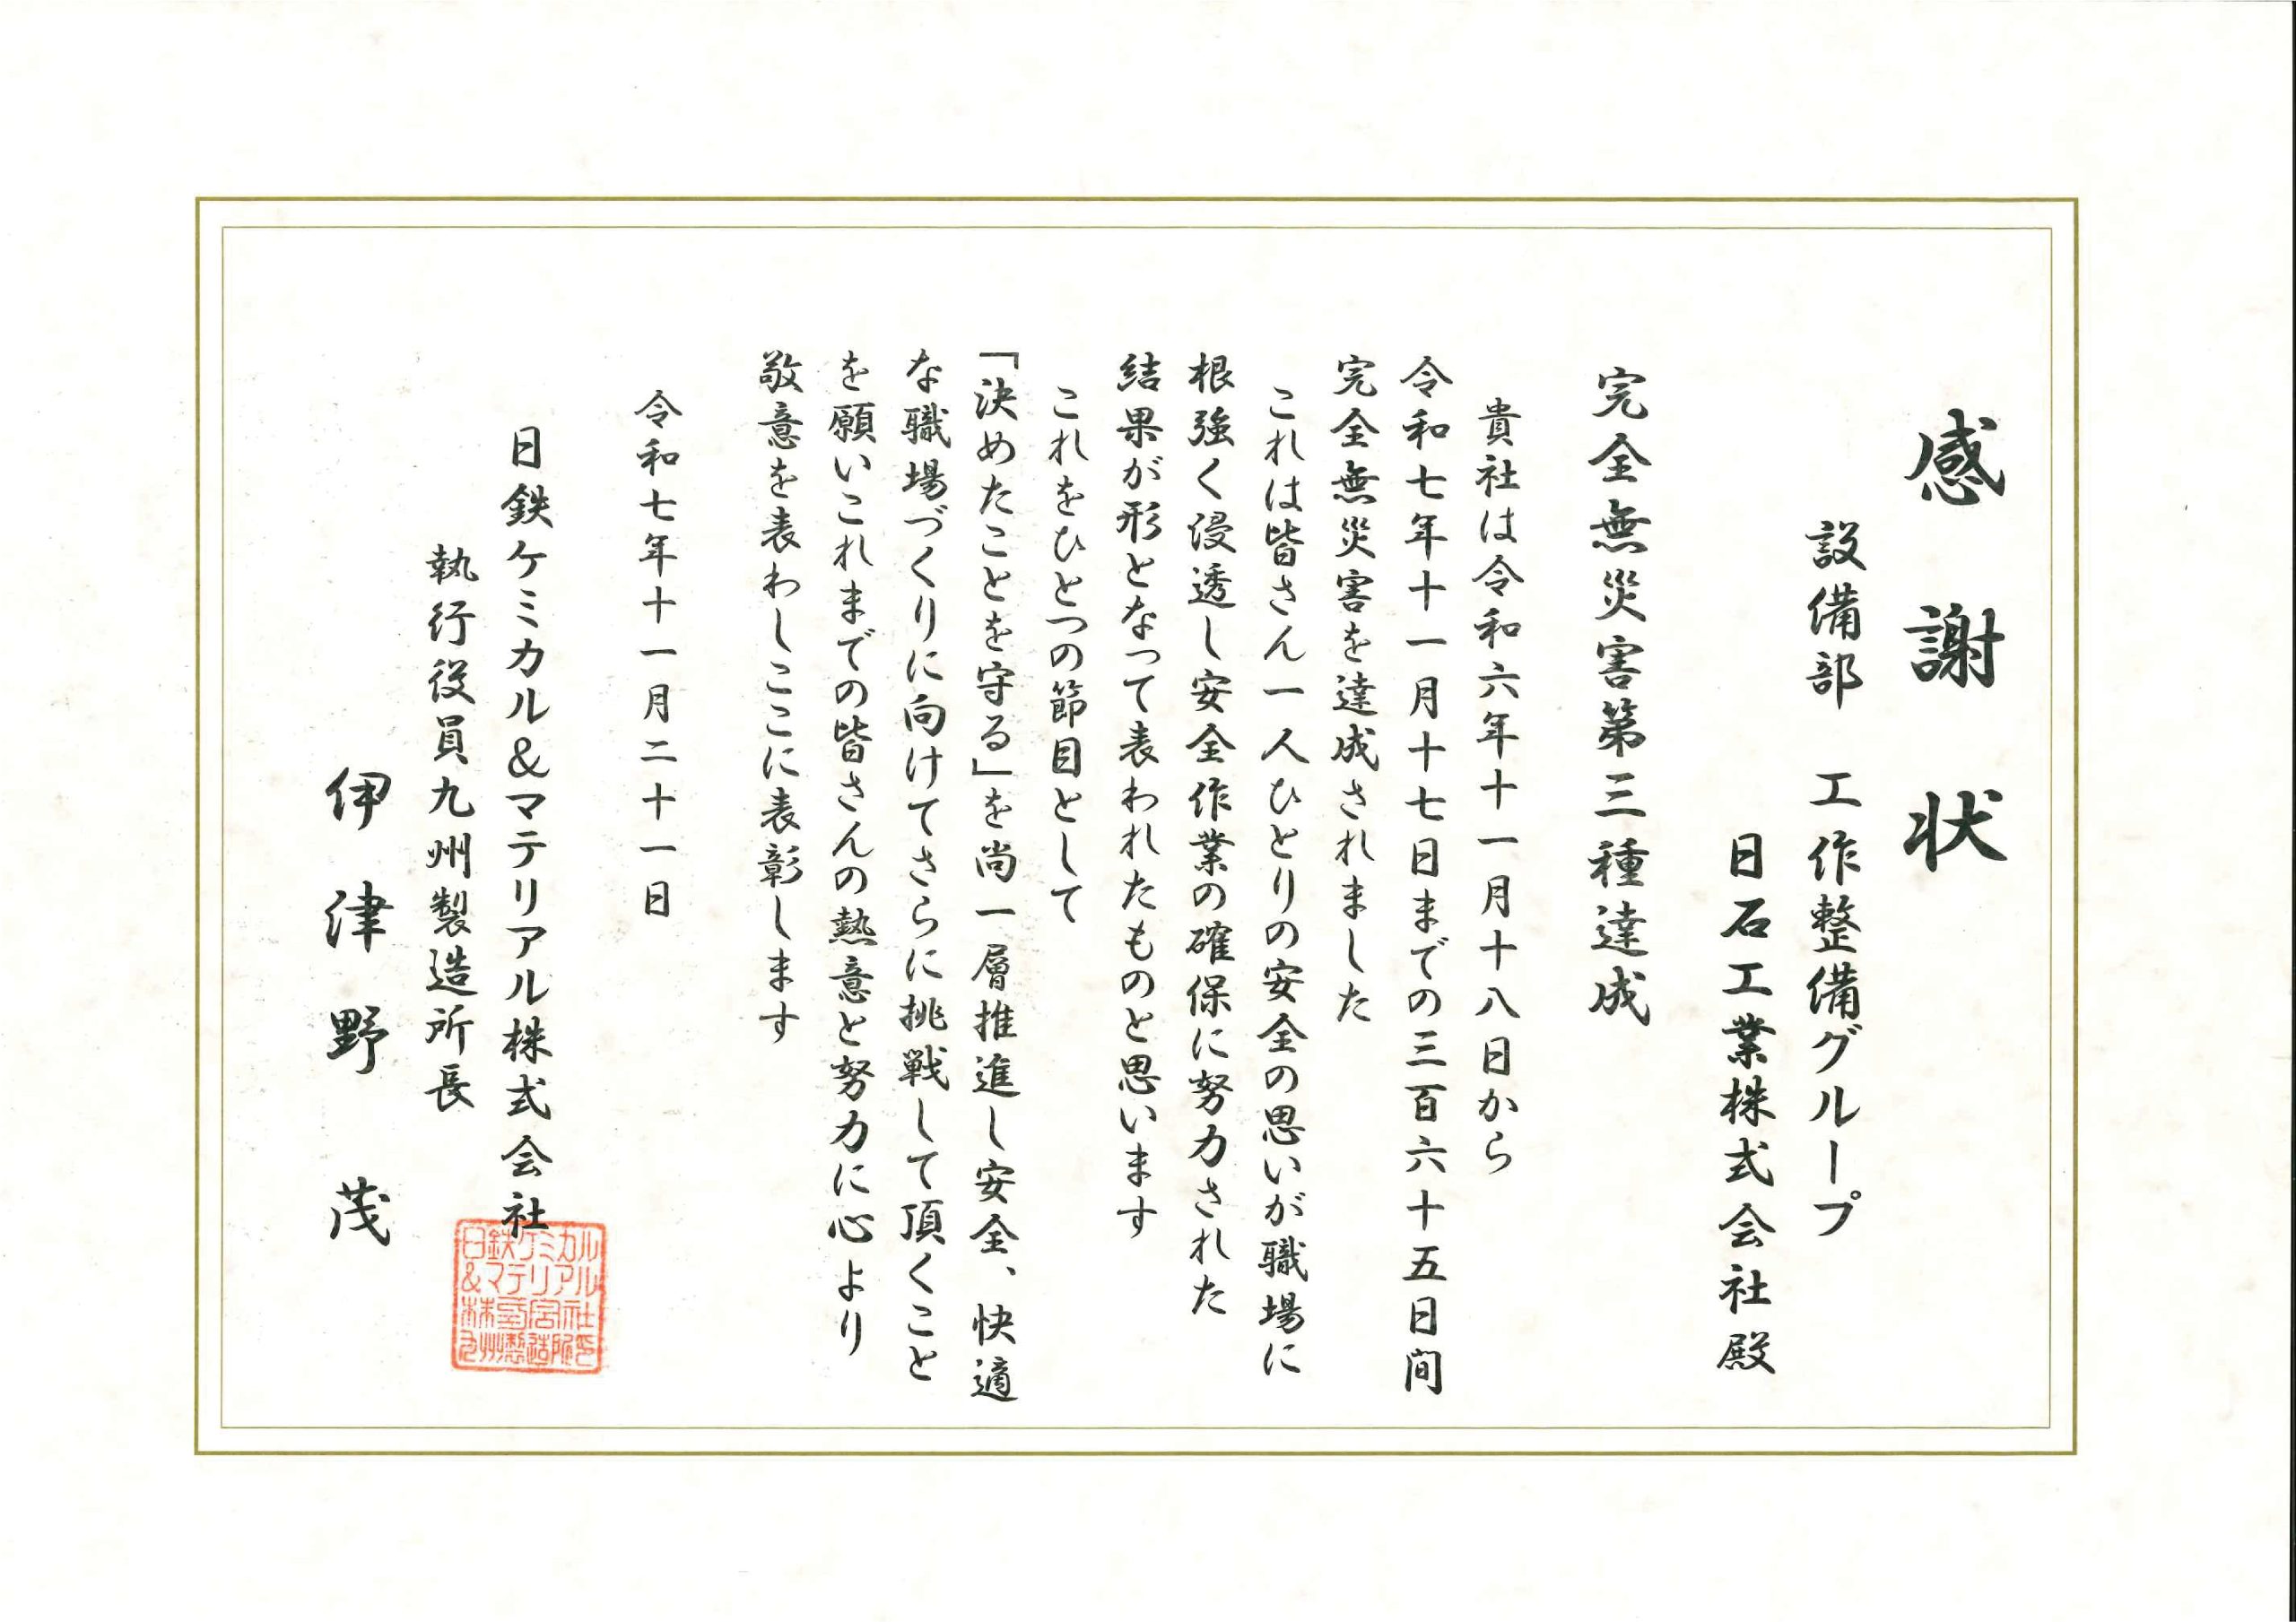 感謝状
設備部　工作整備グループ
日石工業株式会社殿
完全無災害第三種達成
貴社は令和六年十一月十八日から
令和七年十一月十七日までの三百六十五日間
完全無災害を達成されました
これは皆さん一人ひとりの安全の思いが職場に
根強く浸透し安全作業の確保に努力された
結果が形となって表われたものと思います
これをひとつの節目として
「決めたことを守る」を尚一層推進し安全、快適
な職場づくりに向けてさらに挑戦して頂くこと
を願いこれまでの皆さんの熱意と努力に心より
敬意を表わしここに表彰します
令和七年十一月二十一日
日鉄ケミカル&マテリアル株式会社
執行役員九州製造所長
伊津野　茂
日鉄ケミカル
&マテリアル